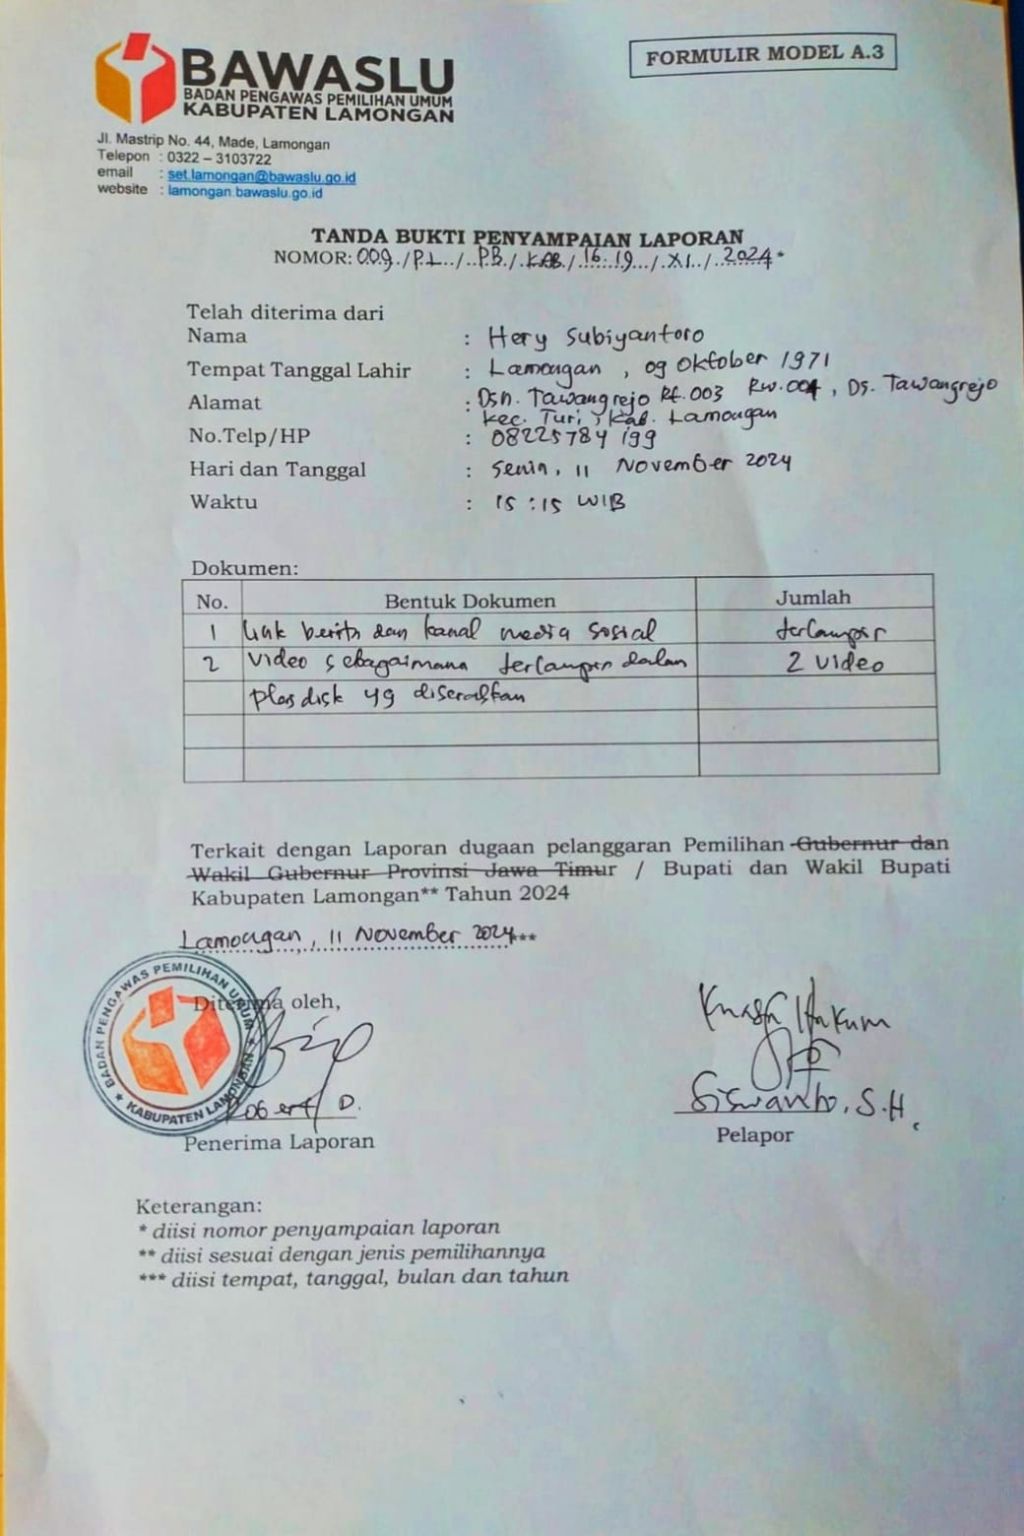 BAWASLU
BADAN PENGAWAS PEMILIHAN UMUM
KABUPATEN LAMONGAN
FORMULIR MODEL A.3
Jl. Mastrip No. 44, Made, Lamongan
Telepon : 0322 – 3103722
email : set.lamongan@bawaslu.go.id
website : lamongan.bawaslu.go.id
TANDA BUKTI PENYAMPAIAN LAPORAN
NOMOR: 009./P.L../..P.B./.KAB./.16.19.../.XI../..2024.*
Telah diterima dari
Nama : Hery Subiyantoro
Tempat Tanggal Lahir : Lamongan, 09 Oktober 1971
Alamat : Dsn. Tawangrejo Rt.003 Rw.004, Ds. Tawangrejo
Kec. Turi, Kab. Lamongan
No.Telp/HP : 08225784 199
Hari dan Tanggal : Senin, 11 November 2024
Waktu : 15:15 WIB
Dokumen:
No. Bentuk Dokumen Jumlah
1 Link berita dan kanal media sosial terlampir
2 Video sebagaimana terlampir dalam 2 Video
plasdisk yg diserahkan
Terkait dengan Laporan dugaan pelanggaran Pemilihan Gubernur dan
Wakil Gubernur Provinsi Jawa Timur / Bupati dan Wakil Bupati
Kabupaten Lamongan** Tahun 2024
Lamongan, 11 November 2024***
BADAN PENGAWAS PEMILIHAN UMUM
KABUPATEN LAMONGAN
Diterima oleh,
Kuasa Hukum
Robert D.
Siswanto, S.H.
Penerima Laporan
Pelapor
Keterangan:
* diisi nomor penyampaian laporan
** diisi sesuai dengan jenis pemilihannya
*** diisi tempat, tanggal, bulan dan tahun